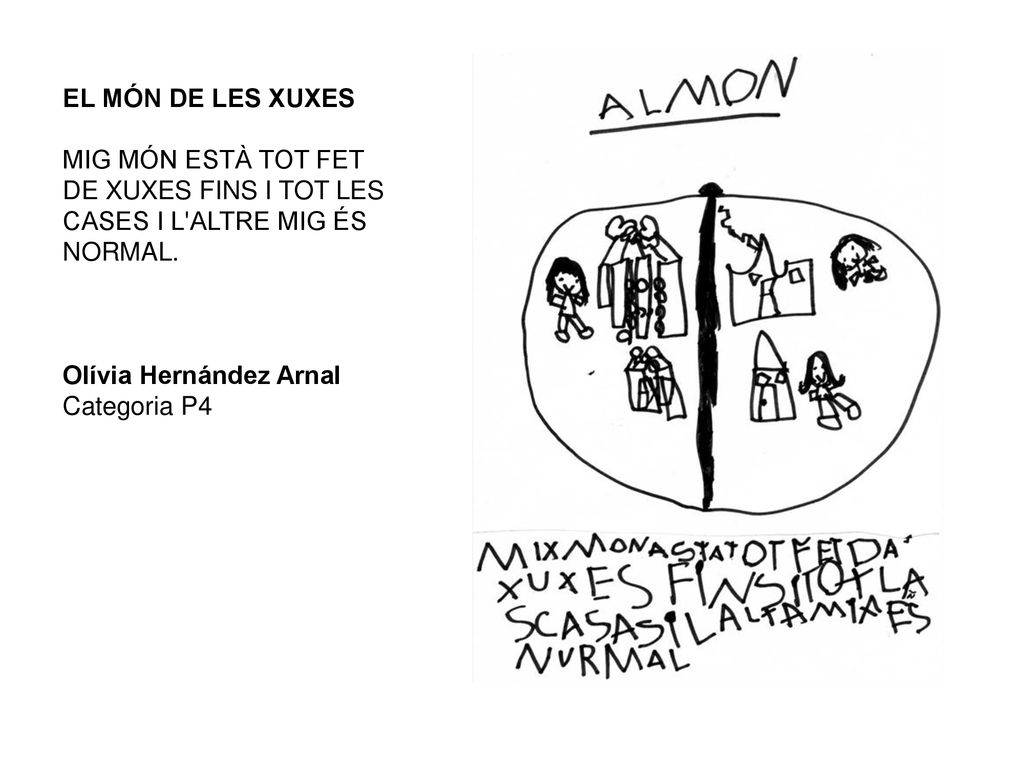 EL MÓN DE LES XUXES
MIG MÓN ESTÀ TOT FET
DE XUXES FINS I TOT LES
CASES I L'ALTRE MIG ÉS
NORMAL.
Olívia Hernández Arnal
Categoria P4
ALMON
MIXMONASTATOTFETDA
XUXES FINSITOTLA
SCASASILALTAMIXES
NURMAL